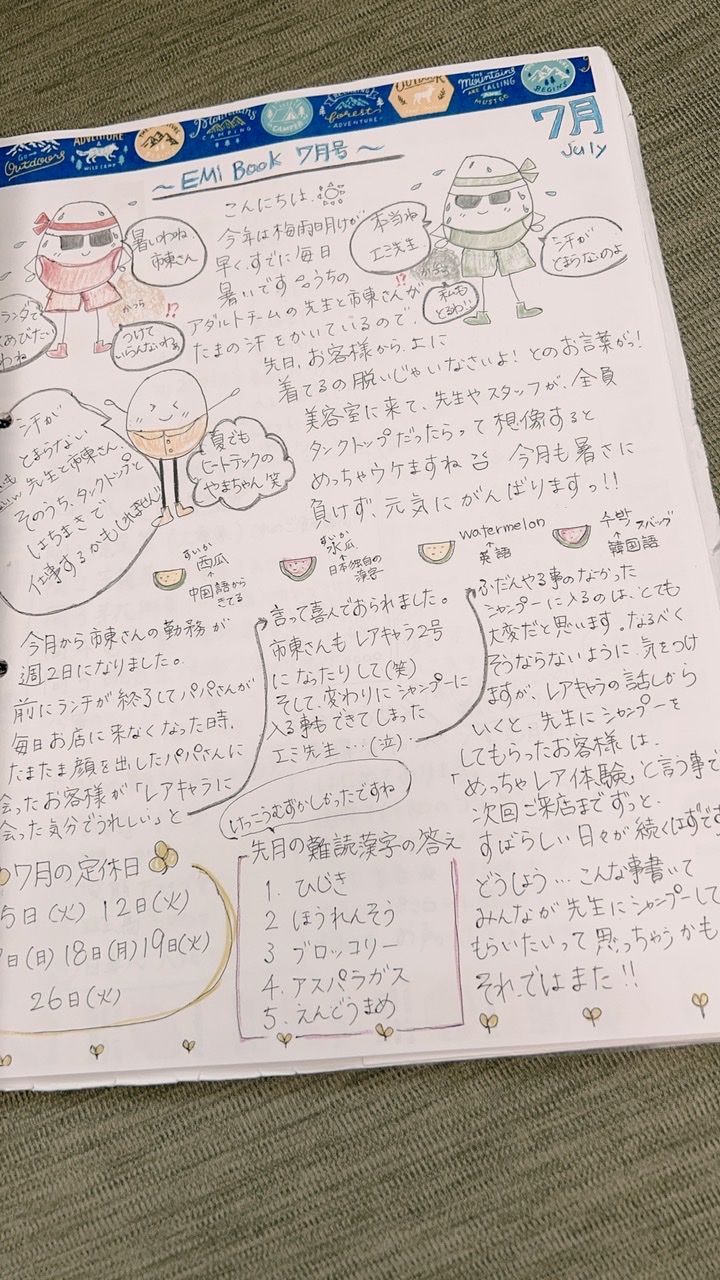 Go Outdoors
ADVENTURE & WILD CAMP
Mountains CAMPING
CAMPER
forest ADVENTURE
OUTDOOR
THE Mountains ARE CALLING MUST GO
BEGINS
7月
July
～ EMi Book 7月号 ～
暑いわね
市東さん
つけて
いらんないわぁ
かつら
!?
本当ね
エミ先生
!?
かつら
私も
とるわ
汗が
とまらないのよ
こんにちは
今年は梅雨明けが
早く、すでに毎日
暑いです。うちの
アダルトチームの先生と市東さんが
たまの汗をかいているので、
先日、お客様から、上に
着てるの脱いじゃいなさいよ! とのお言葉がっ!
美容室に来て、先生やスタッフが、全員
タンクトップだったらって想像すると
めっちゃウケますね
今月も暑さに
負けず、元気にがんばりますっ!!
汗が
とまらない
先生と市東さん、
そのうち、タンクトップと
はちまきで
仕事するかもしれません!!
夏でも
ヒートテックの
やまちゃん 笑
すいか
西瓜
↑
中国語から
きてる
すいか
水瓜
↑
日本独自の
漢字
watermelon
↑
英語
수박 スバッグ
↑
韓国語
今月から市東さんの勤務が
週2日になりました。
前にランチが終了してパパさんが
毎日お店に来なくなった時、
たまたま顔を出したパパさんに
会ったお客様が「レアキャラに
会った気分でうれしい」と
言って喜んでおられました。
市東さんもレアキャラ2号
になったりして(笑)
そして、変わりにシャンプーに
入る事もできてしまった
エミ先生…(泣)
ふだんやる事のなかった
シャンプーに入るのは、とても
大変だと思います。なるべく
そうならないように、気をつけ
ますが、レアキャラの話しから
いくと、先生にシャンプーを
してもらったお客様は、
「めっちゃレア体験」と言う事で
次回ご来店までずっと、
すばらしい日々が続くはずです
どうしよう… こんな事書いて
みんなが先生にシャンプーして
もらいたいって思っちゃうかも
それではまた!!
けっこうむずかしかったですね
先月の難読漢字の答え
1. ひじき
2 ほうれんそう
3 ブロッコリー
4. アスパラガス
5. えんどうまめ
7月の定休日
5日(火) 12日(火)
日(日) 18日(月) 19日(火)
26日(火)